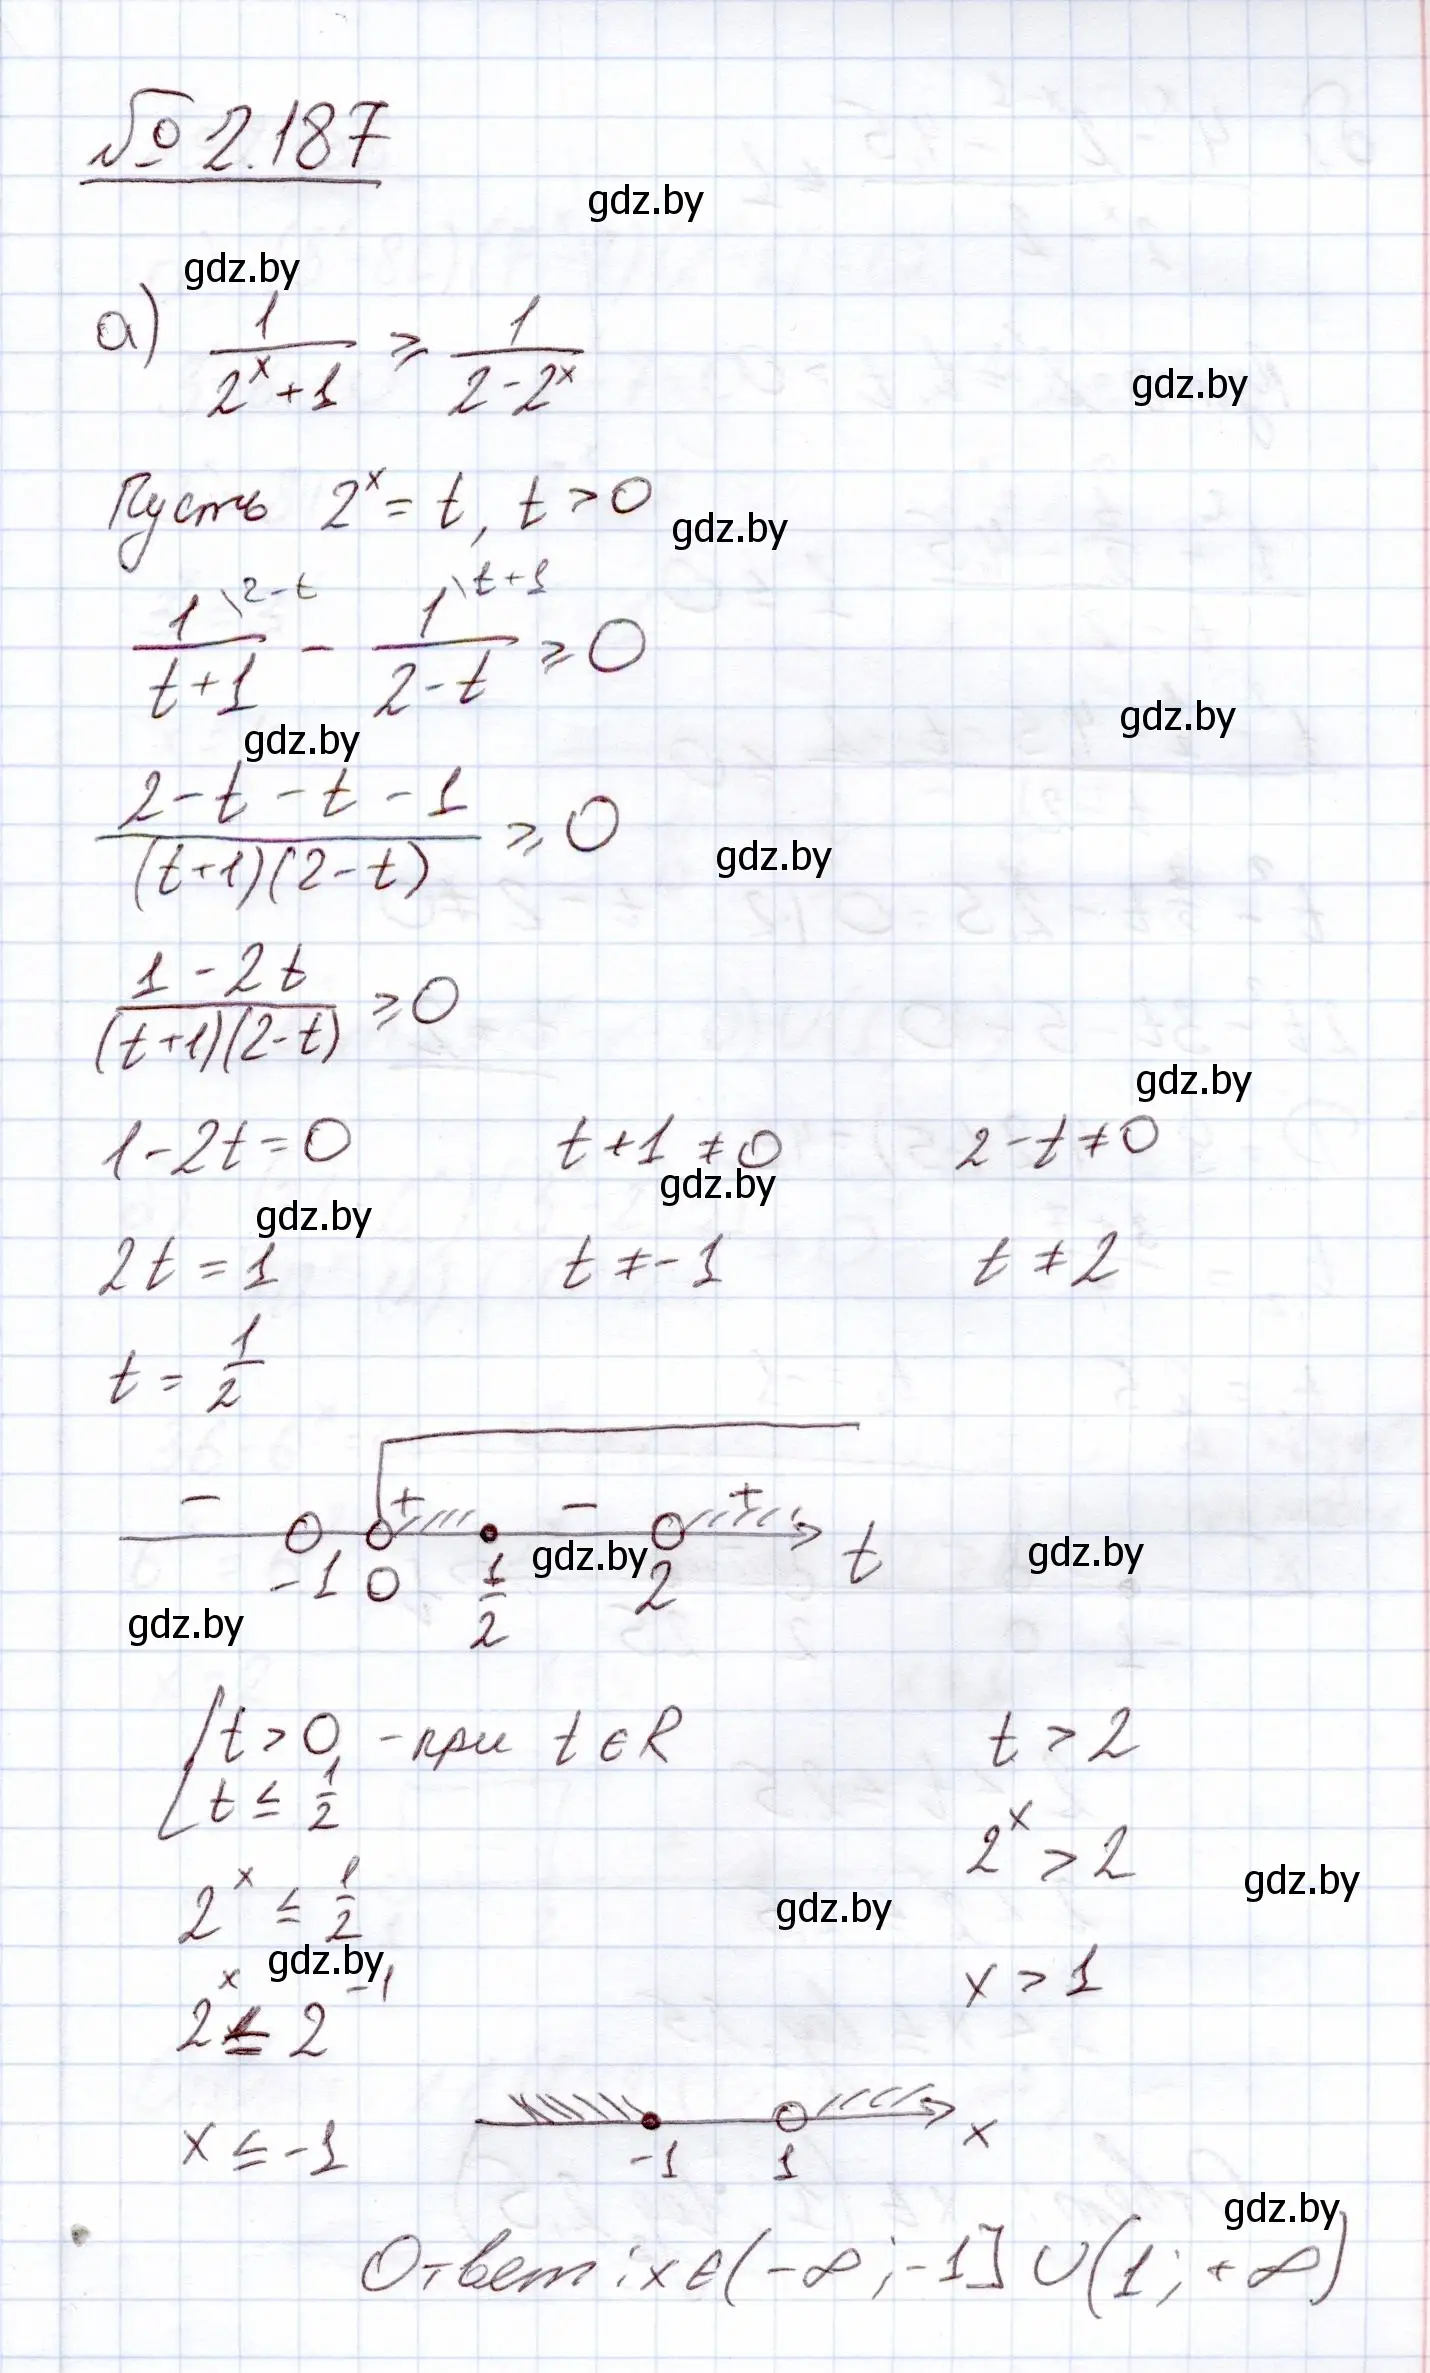 № 2.187
gdz.by
gdz.by
а) 1/(2^x+1) ≥ 1/(2-2^x)
gdz.by
Пусть 2^x = t, t > 0
gdz.by
1\^(2-t)/(t+1) - 1\^(t+1)/(2-t) ≥ 0
gdz.by
gdz.by
(2-t-t-1)/((t+1)(2-t)) ≥ 0
gdz.by
(1-2t)/((t+1)(2-t)) ≥ 0
gdz.by
1-2t=0 t+1≠0 2-t≠0
gdz.by
gdz.by
2t=1 t≠-1 t≠2
t = 1/2
- + - +
-1 0 1/2 2 t
gdz.by
gdz.by
gdz.by
[t>0 - при t∈R t>2
t ≤ 1/2
2^x ≤ 1/2 2^x > 2
gdz.by
gdz.by
gdz.by
2^x ≤ 2^-1 x > 1
x ≤ -1
-1 1 x
gdz.by
Ответ: x∈(-∞;-1]∪(1;+∞)